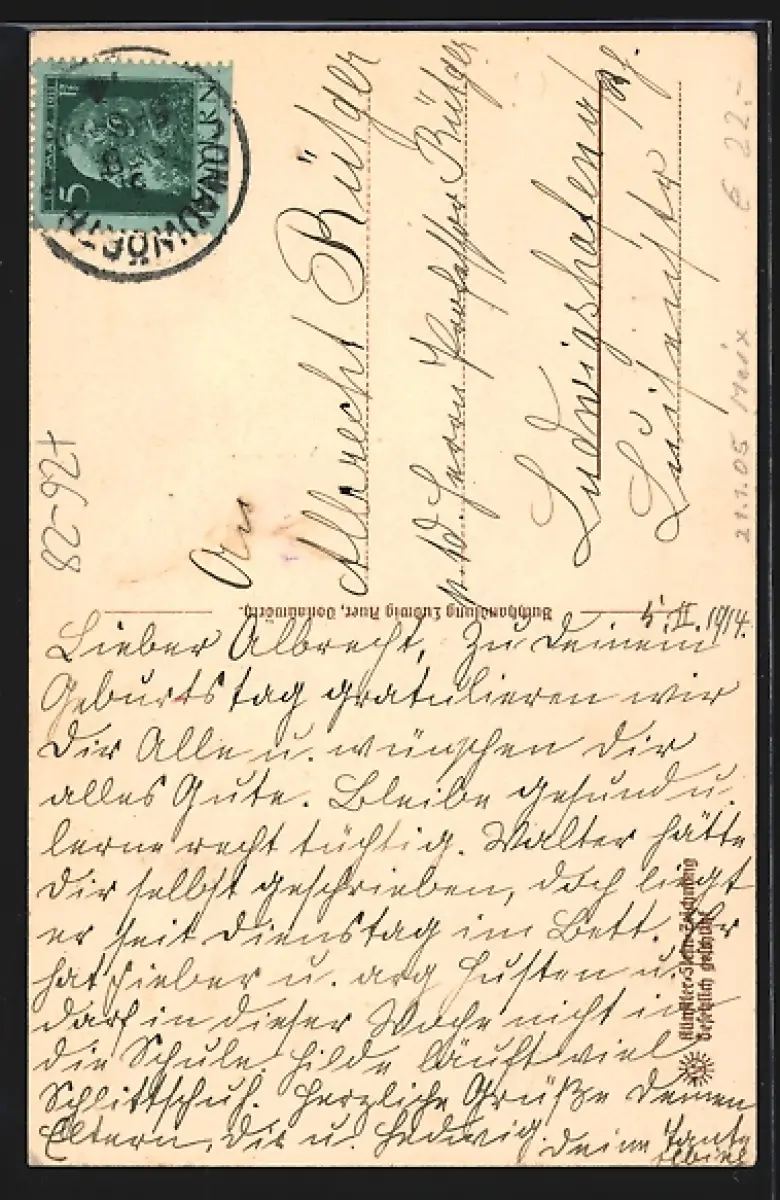 5
BAYERN
DONAUWÖRTH
An
Albrecht Rütger
p. Ad. Herrn Rütger
Ludwigshafen a/Rh.
€ 22,-
21.1.05 Marx
82-92t
Buchhandlung Ludwig Auer, Donauwörth.
5.II.1914.
Lieber Albrecht, Zu Deinem
Geburtstag gratulieren wir
Dir Alle u. wünschen Dir
alles Gute. Bleibe gesund u.
lerne recht tüchtig. Walter hätte
Dir selbst geschrieben, doch liegt
er seit Dienstag im Bett. Er
hat Fieber u. arg Husten u.
darf in dieser Woche nicht in
die Schule. Hilde läuft viel
Schlittschuh. Herzliche Grüße Deinen
Eltern, Dir u. Hedwig. Deine Tante
Künstler-Stein-Zeichnung
Gesetzlich geschützt